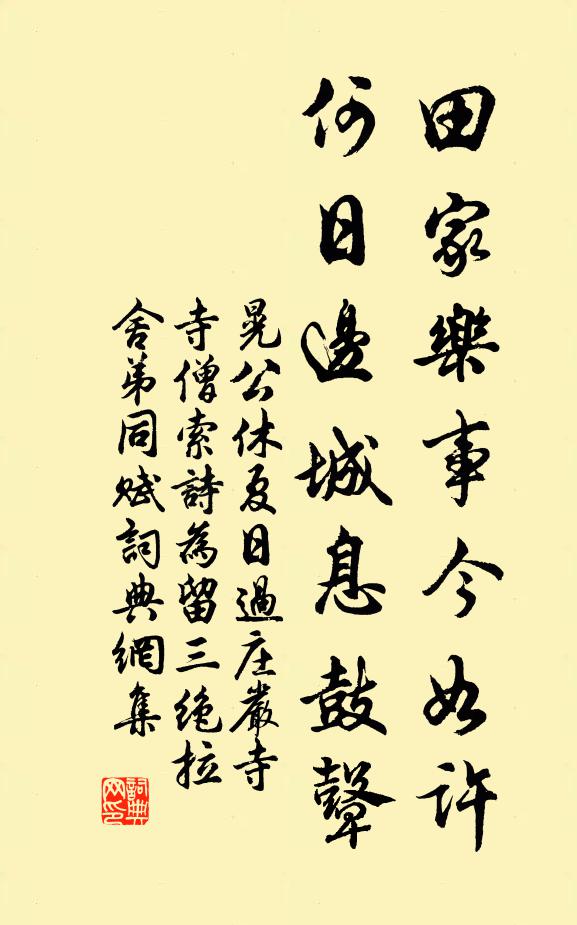 田家樂事今如許
何日邊城息鼓鼙
晁公休夏日過庄嚴寺
寺僧索詩為留三絶拉
舍弟同賦詞典網集
詞典
网印